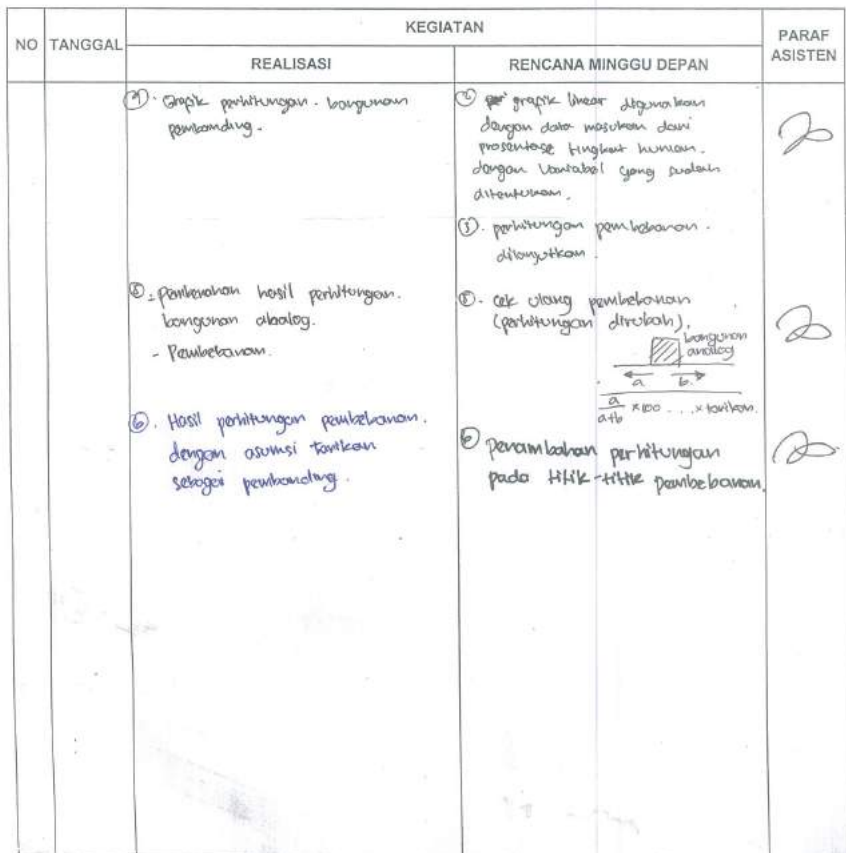 NO TANGGAL KEGIATAN PARAF ASISTEN
REALISASI RENCANA MINGGU DEPAN
Grafik perhitungan bangunan
pembanding.
grafik linear digunakan
dengan data masukan dari
prosentase tingkat hunian.
dengan Variabel yang sudah
ditentukan.
perhitungan pembebanan.
dilanjutkan.
⑤. pembenahan hasil perhitungan.
bangunan abalog.
- Pembebanan.
⑤. cek ulang pembebanan
(perhitungan dirubah).
bangunan
analog
a b
a/a+b x100 ... x tarikan.
⑥. Hasil perhitungan pembebanan.
dengan asumsi tarikan
sebagai pembanding.
⑥ penambahan perhitungan
pada titik-titik pembebanan.